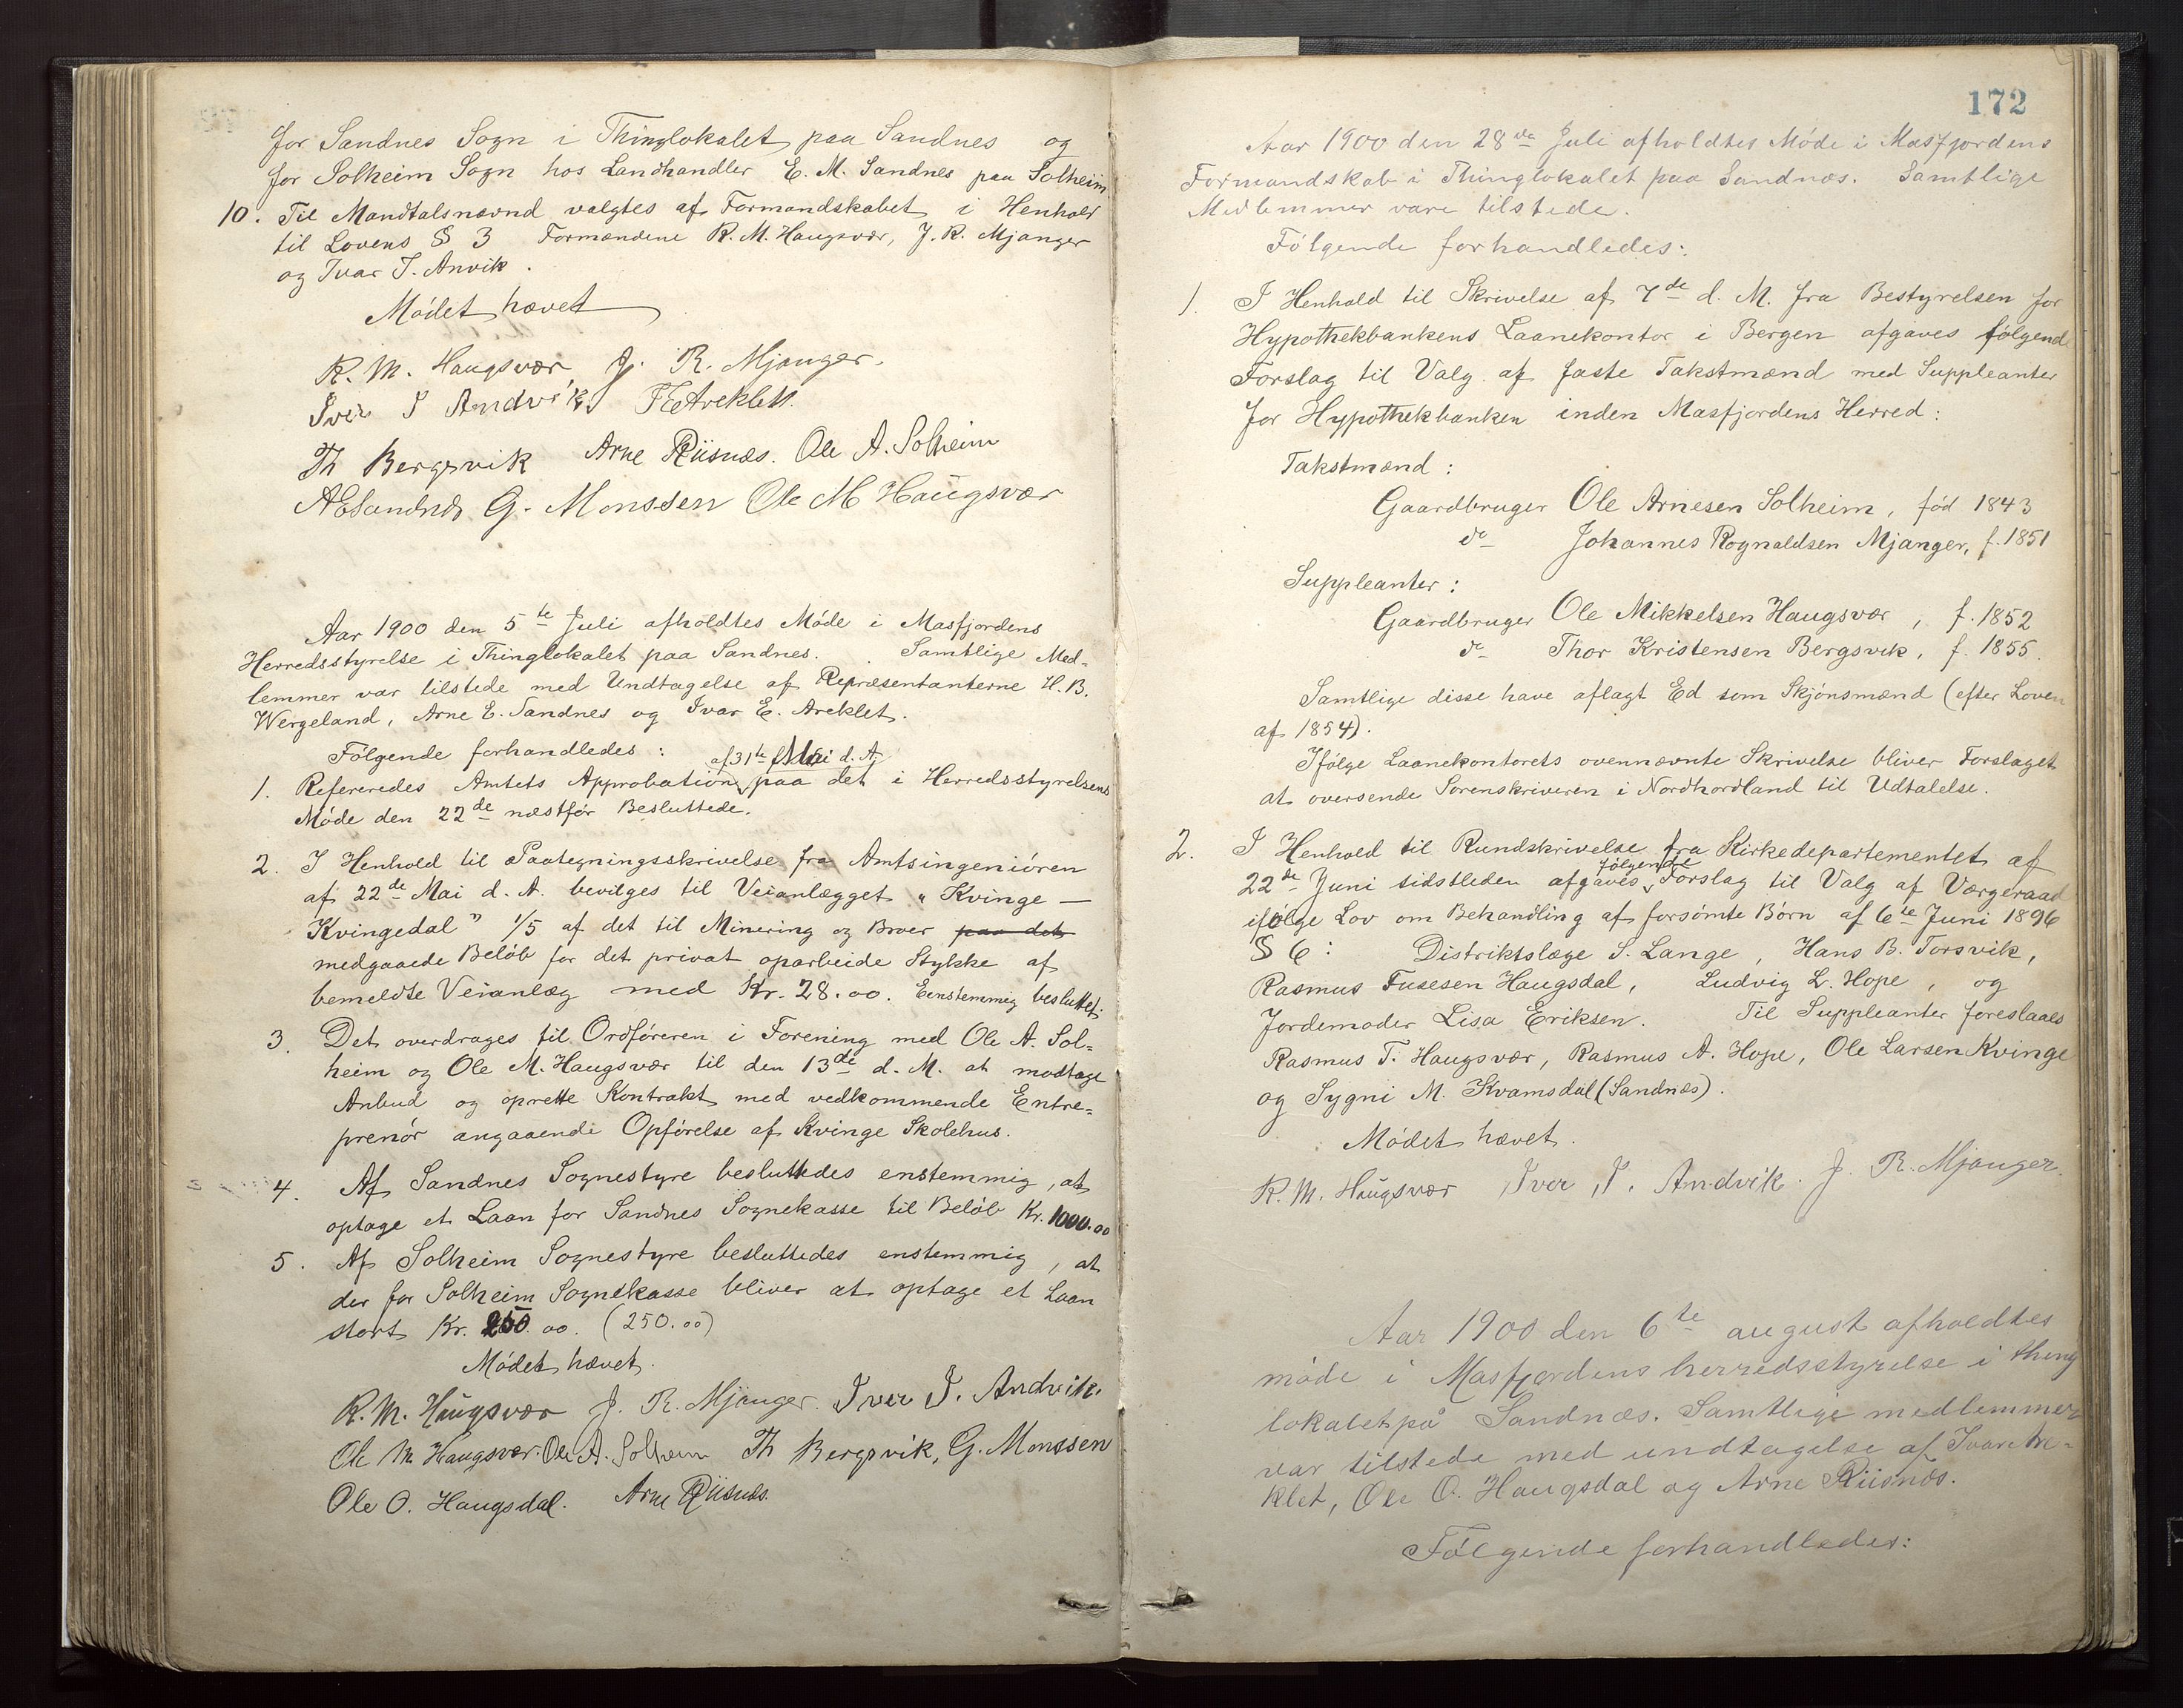 for Sandnes Sogn i Thinglokalet paa Sandnes og
for Solheim Sogn hos Landhandler E. M. Sandnes paa Solheim
10. Til Mandtalsnævnd valgtes af Formandskabet i Henhold
til Lovens § 3 Formændene R. M. Haugsvær, J. R. Mjanger
og Ivar I. Anvik.
Mødet hævet
R. M. Haugsvær J. R. Mjanger.
Iver I Andvik
Th Bergsvik Arne Riisnæs. Ole A. Solheim
G. Monssen Ole M Haugsvær
Aar 1900 den 5te Juli afholdtes Møde i Masfjordens
Herredsstyrelse i Thinglokalet paa Sandnes. Samtlige Med-
lemmer var tilstede med Undtagelse af Repræsentanterne H. B.
Wergeland, Arne E. Sandnes og Ivar E. Areklet.
Følgende forhandledes:
af 31te Mai d. A.
1. Refereredes Amtets Approbation paa det i Herredsstyrelsens
Møde den 22de næstfør Besluttede.
2. I Henhold til Paategningsskrivelse fra Amtsingeniøren
af 22de Mai d. A. bevilges til Veianlægget "Kvinge —
Kvingedal" 1/5 af det til Minering og Broer paa det
medgaaede Beløb for det privat oparbeide Stykke af
bemeldte Veianlæg med Kr. 28.00. Eenstemmig besluttet.
3. Det overdrages til Ordføreren i Forening med Ole A. Sol-
heim og Ole M. Haugsvær til den 13de d. M. at modtage
Anbud og oprette Kontrakt med vedkommende Entre-
prenør angaaende Opførelse af Kvinge Skolehus.
4. Af Sandnes Sognestyre besluttedes enstemmig, at
optage et Laan for Sandnes Sognekasse til Beløb Kr. 1000.00
5. Af Solheim Sognestyre besluttedes enstemmig, at
der for Solheim Sognekasse bliver at optage et Laan
stort Kr. 250.00. (250.00)
Mødet hævet.
R. M. Haugsvær J. R. Mjanger. Iver I. Andvik.
Ole M Haugsvær. Ole A. Solheim Th Bergsvik, G. Monssen
Ole O. Haugsdal. Arne Riisnæs.
172
Aar 1900 den 28de Juli afholdtes Møde i Masfjordens
Formandskab i Thinglokalet paa Sandnæs. Samtlige
Medlemmer vare tilstede.
Følgende forhandledes:
1. I Henhold til Skrivelse af 7de d. M. fra Bestyrelsen for
Hypothekbankens Laanekontor i Bergen afgaves følgende
Forslag til Valg af faste Takstmænd med Suppleanter
for Hypothekbanken inden Masfjordens Herred:
Takstmænd:
Gaardbruger Ole Arnesen Solheim, fød 1843
do Johannes Rognaldsen Mjanger, f. 1851
Suppleanter:
Gaardbruger Ole Mikkelsen Haugsvær, f. 1852
do Thor Kristensen Bergsvik, f. 1855.
Samtlige disse have aflagt Ed som Skjønsmænd (efter Loven
af 1854).
Ifølge Laanekontorets ovennævnte Skrivelse bliver Forslaget
at oversende Sorenskriveren i Nordhordland til Udtalelse.
2. I Henhold til Rundskrivelse fra Kirkedepartementet af
22de Juni sidstleden afgaves følgende Forslag til Valg af Værgeraad
ifølge Lov om Behandling af forsømte Børn af 6te Juni 1896
§ 6: Distriktslæge S. Lange, Hans B. Torsvik,
Rasmus Fusesen Haugsdal, Ludvig L. Hope, og
Jordemoder Lisa Eriksen. Til Suppleanter foreslaaes
Rasmus T. Haugsvær, Rasmus A. Hope, Ole Larsen Kvinge
og Sygni M. Kvamsdal (Sandnæs).
Mødet hævet.
R. M. Haugsvær Iver I. Andvik. J. R. Mjanger.
Aar 1900 den 6te august afholdtes
møde i Masfjordens herredsstyrelse i thing
lokalet på Sandnæs. Samtlige medlemmer
var tilstede med undtagelse af Ivar Are-
klet, Ole O. Haugsdal og Arne Riisnæs.
Følgende forhandledes: